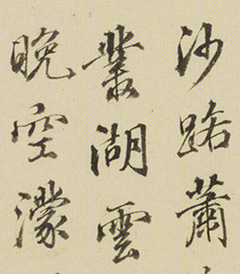 沙路蕭
湖雲
晚空濛